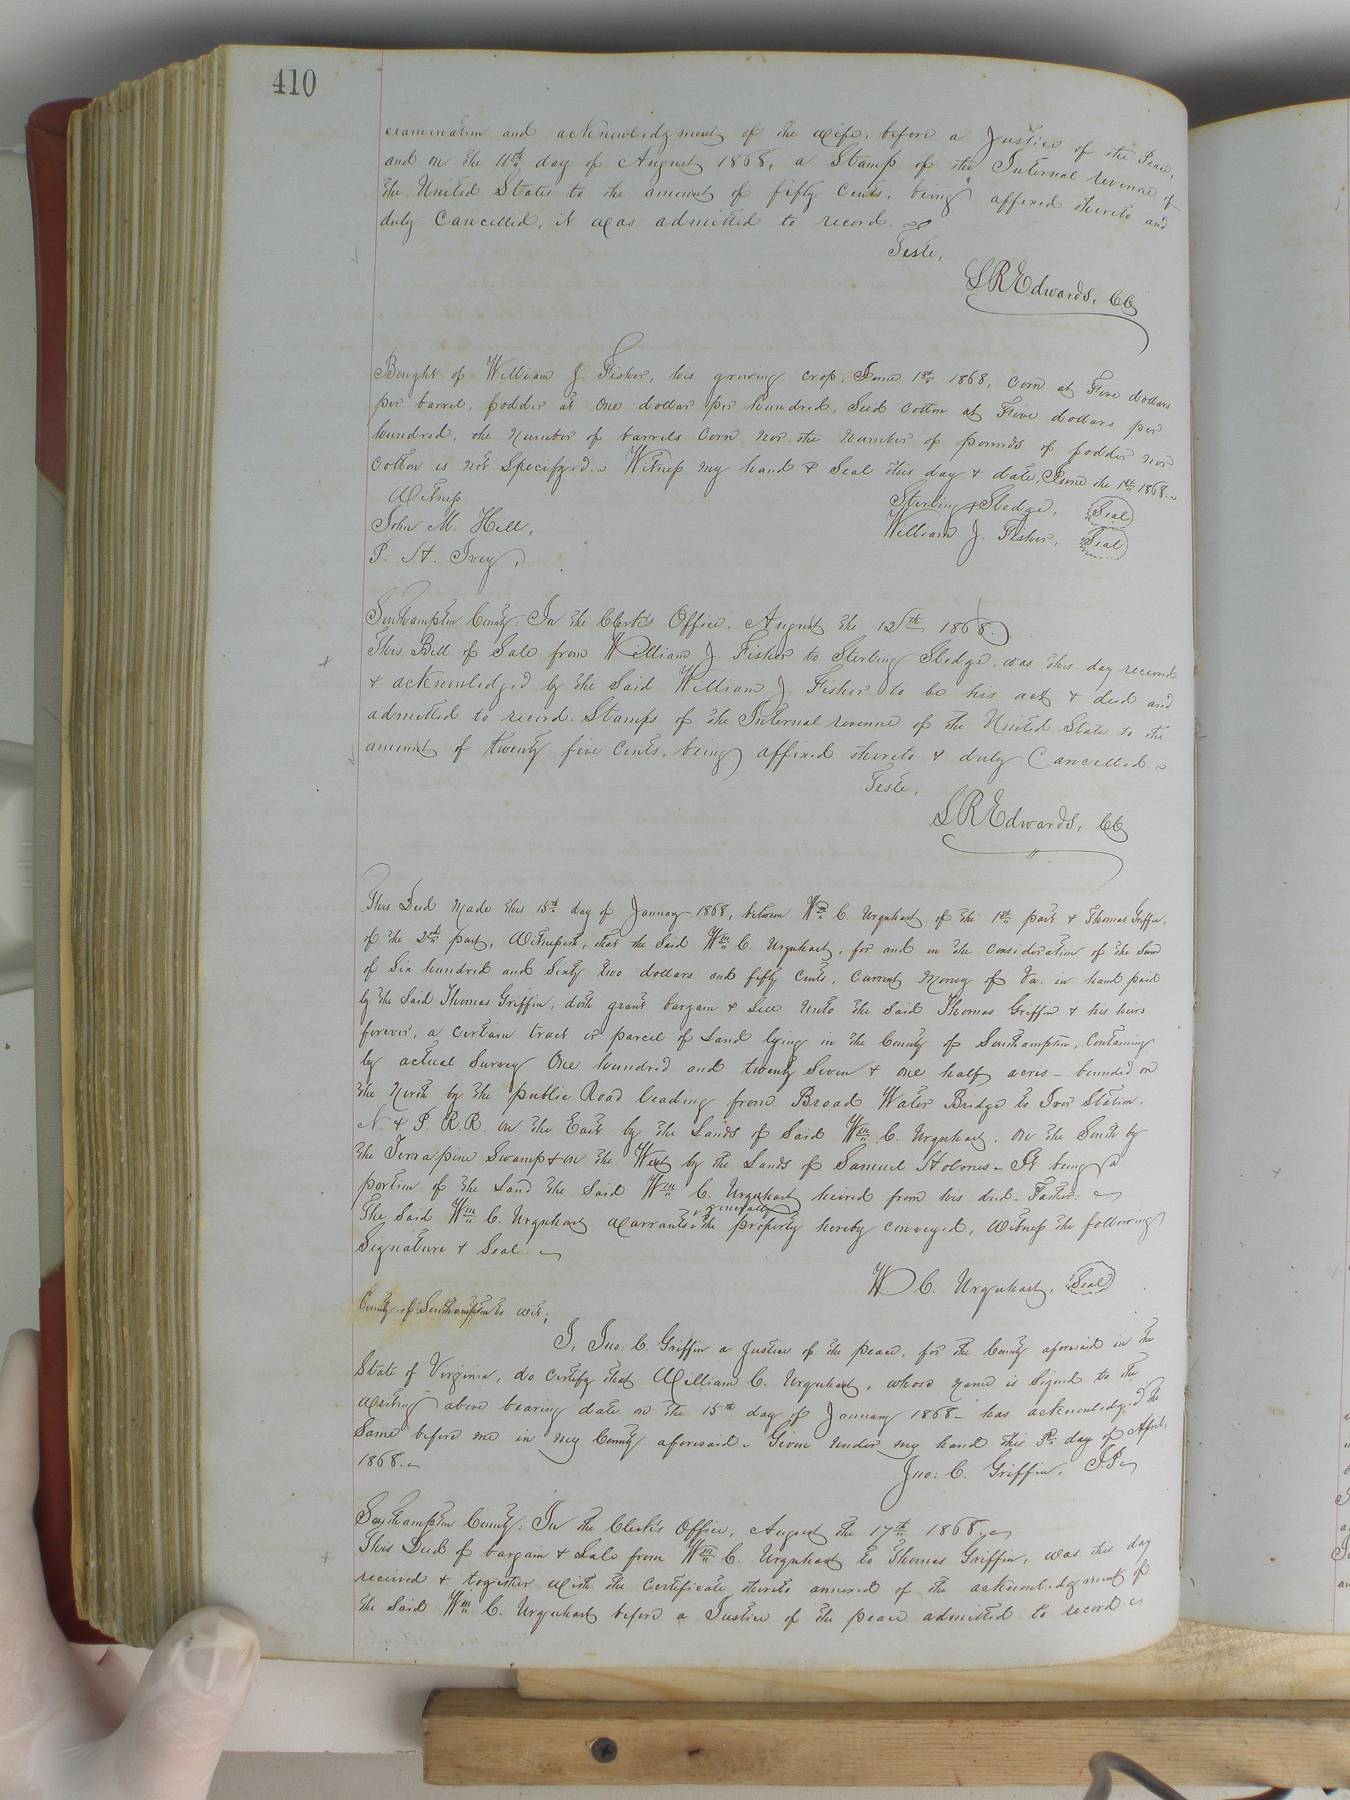 410
examination and acknowledgment of the wife, before a Justice of the Peace,
and on the 11th day of August 1868, a Stamp of the Internal revenue of
the United States to the amount of fifty Cents, being affixed thereto and
duly Cancelled, it was admitted to record.
Teste,
L R Edwards, CC
Bought of William J. Fisher, his growing crop, June 1st 1868, Corn at Five dollars
per barrel, fodder at one dollar per hundred, Seed Cotton at Five dollars per
hundred, the number of barrels Corn nor the number of pounds of fodder nor
Cotton is not Specifyed. Witness my hand & Seal this day & date, June the 1st 1868.
Witness
Sterling Sledge, Seal
John M. Hill,
William J. Fisher, Seal
P. H. Ivey,
Southampton County. In the Clerk's Office, August the 12th 1868.
This Bill of Sale from William J. Fisher to Sterling Sledge was this day received
& acknowledged by the Said William J. Fisher to be his act & deed and
admitted to record. Stamps of the Internal revenue of the United States to the
amount of twenty five Cents, being affixed thereto & duly Cancelled.
Teste,
L R Edwards, CC
This Deed made this 15th day of January 1868, between Wm C. Urquhart of the 1st part & Thomas Griffin,
of the 2nd part, Witnesseth, that the Said Wm C. Urquhart, for and in the consideration of the Sum
of Six hundred and Sixty two dollars and fifty cents, Current money of Va. in hand paid
by the Said Thomas Griffin, doth grant bargain & Sell unto the Said Thomas Griffin & his heirs
forever, a certain tract or parcel of Land lying in the County of Southampton, Containing
by actual Survey One hundred and twenty Seven & one half acres - bounded on
the North by the public Road leading from Broad Water Bridge to Ivor Station,
N. & P. R.R. on the East by the Lands of Said Wm C. Urquhart. On the South by
the Terrapine Swamp & on the West by the Lands of Samuel Holmes - It being a
portion of the Land the Said Wm C. Urquhart heired from his decd. Father.
generally
The Said Wm C. Urquhart warrants the property hereby conveyed, Witness the following
Signature & Seal.
W C. Urquhart, Seal
County of Southampton to wit;
I, Jno: C. Griffin a Justice of the peace, for the County aforesaid in the
State of Virginia, do certify that William C. Urquhart, whose name is Signed to the
writing above bearing date on the 15th day of January 1868 - has acknowledged the
Same before me in my County aforesaid. Given under my hand this day of April,
1868.
Jno: C. Griffin, J.P.
Southampton County: In the Clerk's Office, August the 17th 1868.
This Deed of bargain & Sale from Wm C. Urquhart to Thomas Griffin, was this day
received & together with the certificate thereto annexed of the acknowledgment of
the Said Wm C. Urquhart before a Justice of the peace admitted to record.